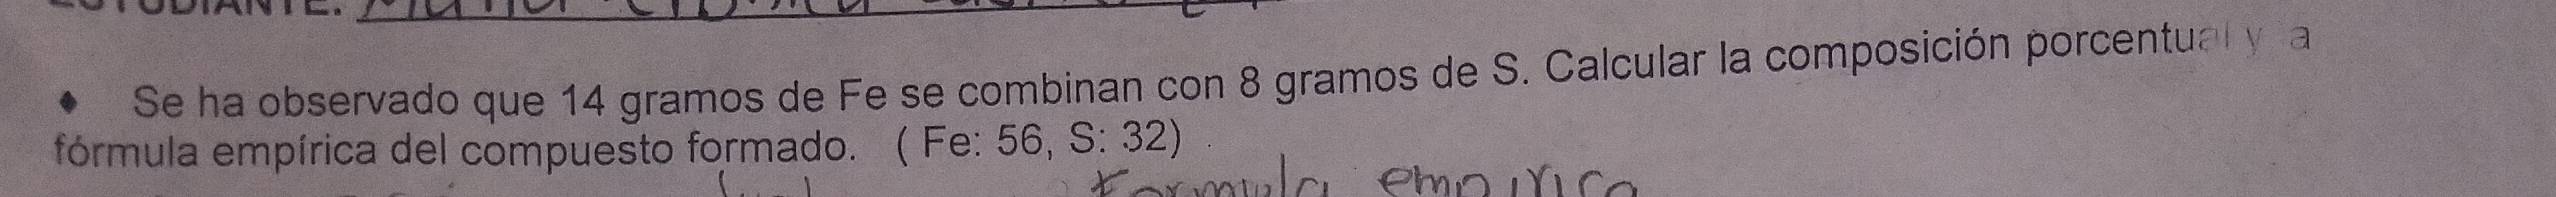 Se ha observado que 14 gramos de Fe se combinan con 8 gramos de S. Calcular la composición porcentual y a
fórmula empírica del compuesto formado. ( Fe: 56, S: 32)
Formula empirica